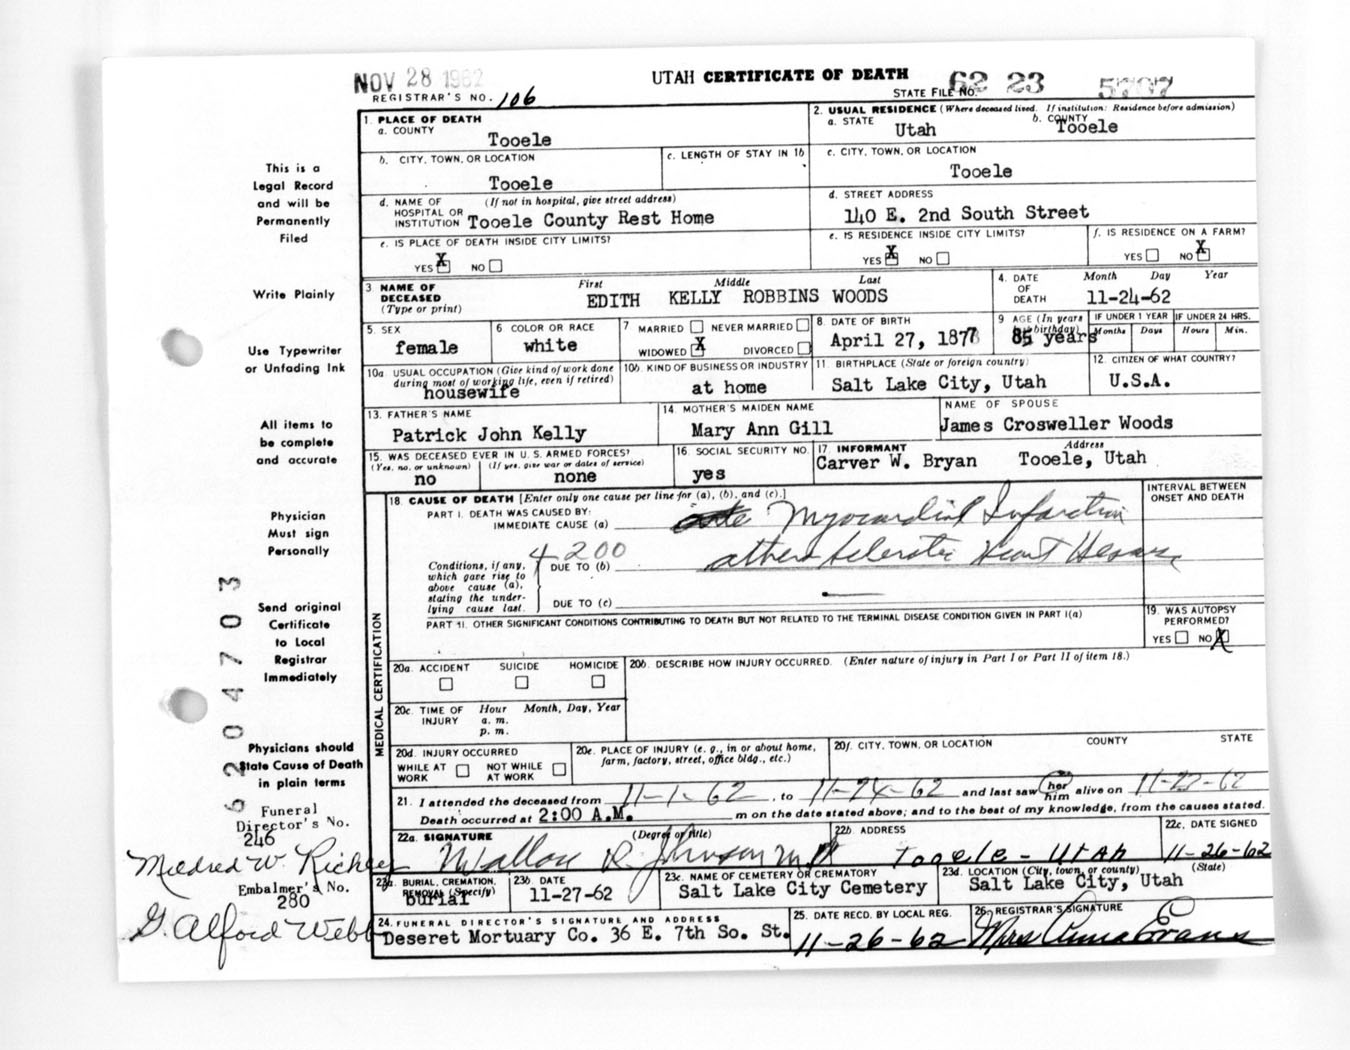 NOV 28 1962
UTAH CERTIFICATE OF DEATH
REGISTRAR'S NO. 106
STATE FILE NO. 62 23 5707
This is a
Legal Record
and will be
Permanently
Filed
Write Plainly
Use Typewriter
or Unfading Ink
All items to
be complete
and accurate
Physician
Must sign
Personally
Send original
Certificate
to Local
Registrar
Immediately
Physicians should
State Cause of Death
in plain terms
Funeral
Director's No.
246
Mildred W.
Embalmer's No.
280
G. Alford Webb
1. PLACE OF DEATH
a. COUNTY
Tooele
b. CITY, TOWN, OR LOCATION
Tooele
c. LENGTH OF STAY IN 1b
d. NAME OF HOSPITAL OR INSTITUTION (If not in hospital, give street address)
Tooele County Rest Home
e. IS PLACE OF DEATH INSIDE CITY LIMITS?
YES X NO
2. USUAL RESIDENCE (Where deceased lived. If institution: Residence before admission)
a. STATE
Utah
b. COUNTY
Tooele
c. CITY, TOWN, OR LOCATION
Tooele
d. STREET ADDRESS
140 E. 2nd South Street
e. IS RESIDENCE INSIDE CITY LIMITS?
YES X NO
f. IS RESIDENCE ON A FARM?
YES NO X
3 NAME OF DECEASED (Type or print)
First Middle Last
EDITH KELLY ROBBINS WOODS
4. DATE OF DEATH
Month Day Year
11-24-62
5. SEX
female
6 COLOR OR RACE
white
7 MARRIED NEVER MARRIED
WIDOWED X DIVORCED
8. DATE OF BIRTH
April 27, 1877
9 AGE (In years birthday)
85 years
IF UNDER 1 YEAR
Months Days
IF UNDER 24 HRS.
Hours Min.
10a USUAL OCCUPATION (Give kind of work done during most of working life, even if retired)
housewife
10b. KIND OF BUSINESS OR INDUSTRY
at home
11 BIRTHPLACE (State or foreign country)
Salt Lake City, Utah
12. CITIZEN OF WHAT COUNTRY?
U.S.A.
13. FATHER'S NAME
Patrick John Kelly
14 MOTHER'S MAIDEN NAME
Mary Ann Gill
NAME OF SPOUSE
James Crosweller Woods
15. WAS DECEASED EVER IN U. S. ARMED FORCES?
(Yes, no, or unknown) (If yes, give war or dates of service)
no none
16. SOCIAL SECURITY NO.
yes
17. INFORMANT Address
Carver W. Bryan Tooele, Utah
MEDICAL CERTIFICATION
18. CAUSE OF DEATH [Enter only one cause per line for (a), (b), and (c).]
INTERVAL BETWEEN ONSET AND DEATH
PART I. DEATH WAS CAUSED BY:
IMMEDIATE CAUSE (a) Myocardial Infarction
4200
Conditions, if any, which gave rise to above cause (a), stating the underlying cause last.
DUE TO (b) Heart
DUE TO (c)
PART II. OTHER SIGNIFICANT CONDITIONS CONTRIBUTING TO DEATH BUT NOT RELATED TO THE TERMINAL DISEASE CONDITION GIVEN IN PART I(a)
19. WAS AUTOPSY PERFORMED?
YES NO X
20a. ACCIDENT SUICIDE HOMICIDE
20b. DESCRIBE HOW INJURY OCCURRED. (Enter nature of injury in Part I or Part II of item 18.)
20c. TIME OF INJURY Hour Month, Day, Year
a. m.
p. m.
20d. INJURY OCCURRED
WHILE AT WORK NOT WHILE AT WORK
20e. PLACE OF INJURY (e. g., in or about home, farm, factory, street, office bldg., etc.)
20f. CITY, TOWN, OR LOCATION COUNTY STATE
21. I attended the deceased from 11-1-62, to 11-24-62 and last saw her him alive on 11-22-62
Death occurred at 2:00 A.M. m on the date stated above; and to the best of my knowledge, from the causes stated.
22a. SIGNATURE (Degree or title)
R. Johnson MD
22b. ADDRESS
Tooele - Utah
22c. DATE SIGNED
11-26-62
23a. BURIAL, CREMATION, REMOVAL (Specify)
burial
23b. DATE
11-27-62
23c. NAME OF CEMETERY OR CREMATORY
Salt Lake City Cemetery
23d. LOCATION (City, town, or county) (State)
Salt Lake City, Utah
24. FUNERAL DIRECTOR'S SIGNATURE AND ADDRESS
Deseret Mortuary Co. 36 E. 7th So. St.
25. DATE RECD. BY LOCAL REG.
11-26-62
26. REGISTRAR'S SIGNATURE
Mrs Anna Evans